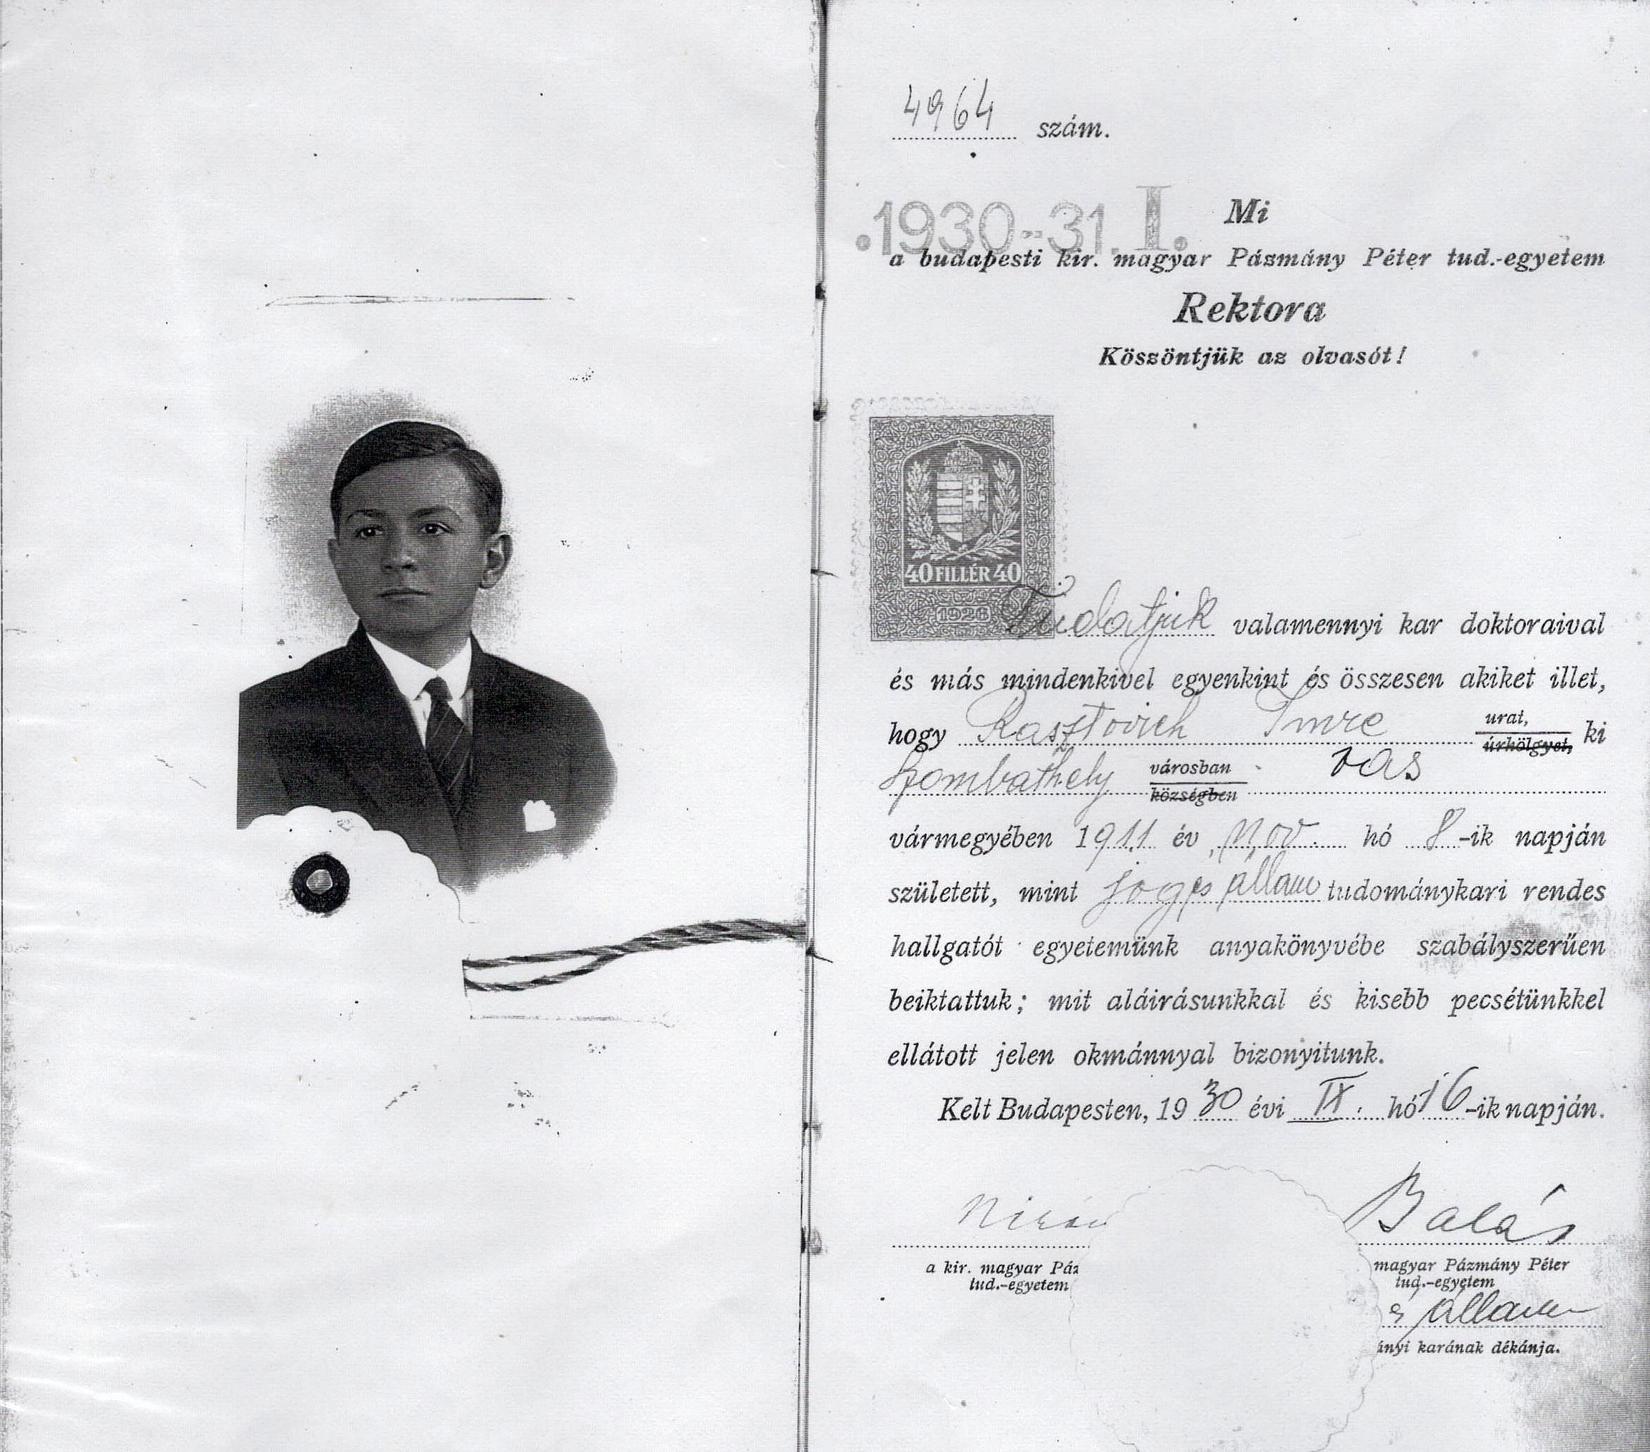 4964 szám.
1930-31. I.
Mi
a budapesti kir. magyar Pázmány Péter tud.-egyetem
Rektora
Köszöntjük az olvasót!
40 FILLÉR 40
Tudatjuk valamennyi kar doktoraival
és más mindenkivel egyenkint és összesen akiket illet,
hogy Rasztovich Imre urat, úrhölgyet, ki
Szombathely városban községben Vas
vármegyében 1911 év nov. hó 8-ik napján
született, mint jog és állam tudománykari rendes
hallgatót egyetemünk anyakönyvébe szabályszerűen
beiktattuk; mit aláirásunkkal és kisebb pecsétünkkel
ellátott jelen okmánnyal bizonyitunk.
Kelt Budapesten, 1930 évi IX. hó 16-ik napján.
Balás
a kir. magyar Páz magyar Pázmány Péter
tud.-egyetem tud.-egyetem
állam
ányi karának dékánja.